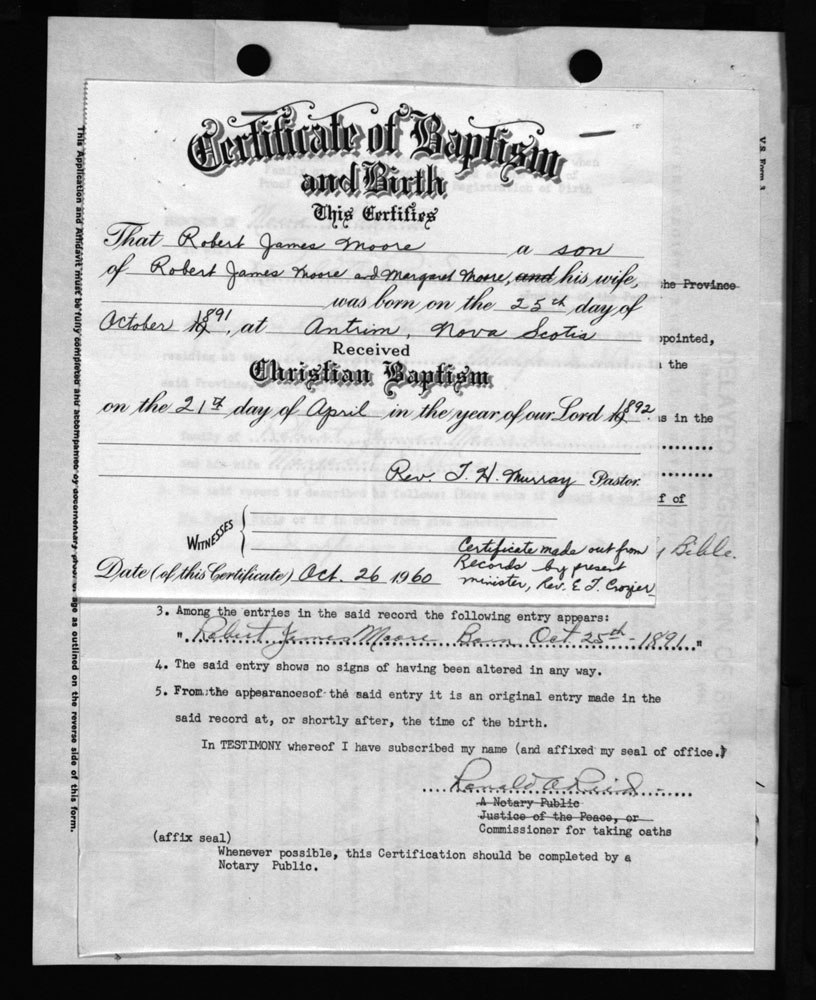 Certificate of Baptism
and Birth
This Certifies
That Robert James Moore a son
of Robert James Moore and Margaret Moore, and his wife,
was born on the 25th day of
October 1891, at Antrim, Nova Scotia
Received
Christian Baptism
on the 21st day of April in the year of our Lord 1892
Rev. T. H. Murray Pastor.
WITNESSES
Certificate made out from
Records by present
minister, Rev. E. T. Crozier
Date (of this Certificate) Oct. 26 1960
the Province
appointed,
the
in the
f of
Bible.
3. Among the entries in the said record the following entry appears:
" Robert James Moore Born Oct 25th - 1891. "
4. The said entry shows no signs of having been altered in any way.
5. From the appearances of the said entry it is an original entry made in the
said record at, or shortly after, the time of the birth.
In TESTIMONY whereof I have subscribed my name (and affixed my seal of office.)
Ronald A Reid
A Notary Public
Justice of the Peace, or
Commissioner for taking oaths
(affix seal)
Whenever possible, this Certification should be completed by a
Notary Public.
This Application and Affidavit must be fully completed and accompanied by documentary proof of age as outlined on the reverse side of this form.
V.S. Form 3